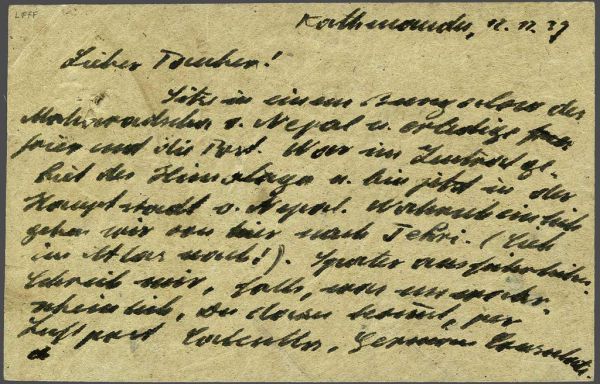 LFFF
Kathmandu, 12. 11. 39
Lieber Tauber!
Sitze in einem Bungalow des
Maharadscha v. Nepal u. erledige
und die Post. War im Zentralge-
biet des Himalaya u. bin jetzt in der
Hauptstadt v. Nepal. Wahrscheinlich
gehen wir von hier nach Tehri. (Sieh
im Atlas nach!). Später ausführlicher.
Schreib mir, falls, was unwahr-
scheinlich, Du dazu kommst, per
Luftpost Calcutta, German Consulat.